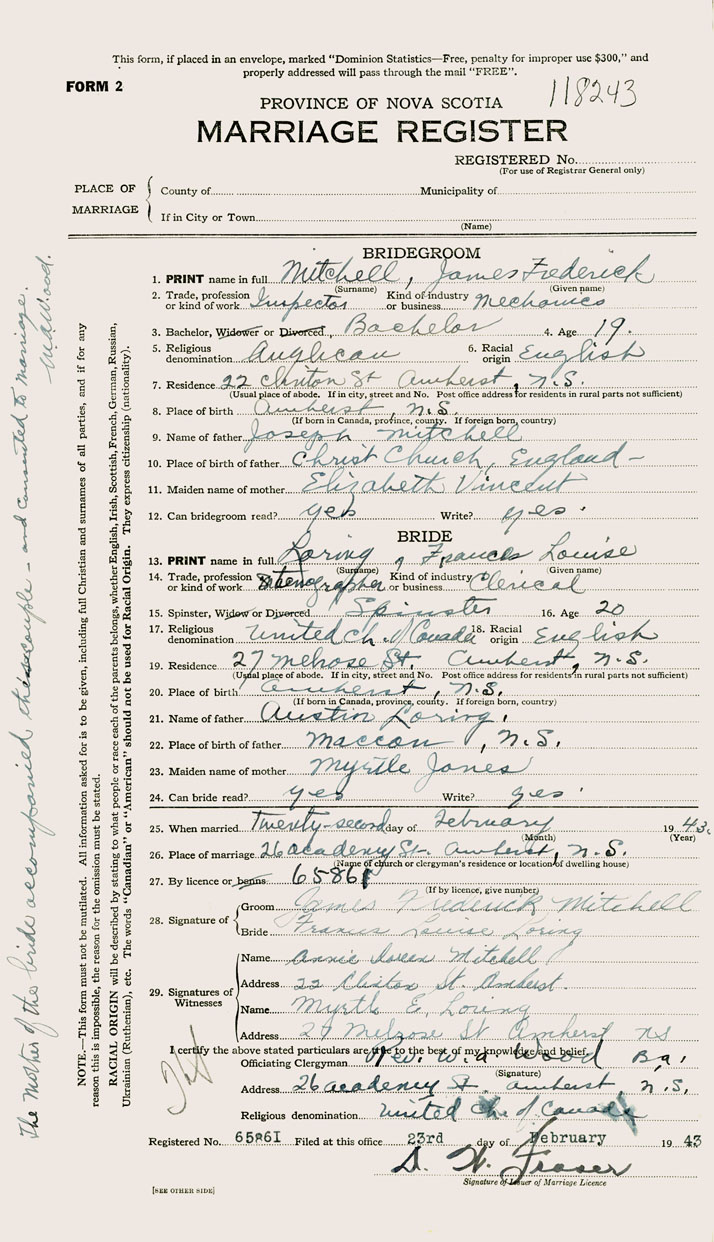 This form, if placed in an envelope, marked "Dominion Statistics—Free, penalty for improper use $300," and
properly addressed will pass through the mail "FREE".
FORM 2
118243
PROVINCE OF NOVA SCOTIA
MARRIAGE REGISTER
REGISTERED No.
(For use of Registrar General only)
PLACE OF MARRIAGE
County of Municipality of
If in City or Town
(Name)
BRIDEGROOM
1. PRINT name in full Mitchell, James Frederick
(Surname) (Given name)
2. Trade, profession or kind of work Inspector Kind of industry or business Mechanics
3. Bachelor, Widower or Divorced, Bachelor 4. Age 19.
5. Religious denomination Anglican 6. Racial origin English
7. Residence 22 Clinton St Amherst, N.S.
(Usual place of abode. If in city, street and No. Post office address for residents in rural parts not sufficient)
8. Place of birth Amherst, N.S.
(If born in Canada, province, county. If foreign born, country)
9. Name of father Joseph Mitchell
10. Place of birth of father Christ Church, England —
11. Maiden name of mother Elizabeth Vincent
12. Can bridegroom read? yes Write? yes.
BRIDE
13. PRINT name in full Loring, Frances Louise
(Surname) (Given name)
14. Trade, profession or kind of work Stenographer Kind of industry or business Clerical
15. Spinster, Widow or Divorced Spinster 16. Age 20
17. Religious denomination United Ch. of Canada 18. Racial origin English
19. Residence 27 Melrose St. Amherst, N.S.
(Usual place of abode. If in city, street and No. Post office address for residents in rural parts not sufficient)
20. Place of birth Amherst, N.S.
(If born in Canada, province, county. If foreign born, country)
21. Name of father Austin Loring.
22. Place of birth of father Maccan, N.S.
23. Maiden name of mother Myrtle Jones
24. Can bride read? yes Write? yes.
25. When married Twenty-second day of February 1943.
(Month) (Year)
26. Place of marriage 26 Academy St. Amherst, N.S.
(Name of church or clergyman's residence or location of dwelling house)
27. By licence or banns 65861
(If by licence, give number)
28. Signature of
Groom James Frederick Mitchell
Bride Francis Louise Loring
29. Signatures of Witnesses
Name Annie Doreen Mitchell
Address 22 Clinton St. Amherst.
Name Myrtle E. Loring
Address 27 Melrose St Amherst NS
I certify the above stated particulars are true to the best of my knowledge and belief.
Officiating Clergyman Rev. W. A. Wood B.a.
(Signature)
Address 26 Academy St. Amherst, N.S.
Religious denomination United Ch. of Canada
Registered No. 65861 Filed at this office 23rd day of February 1943
D. W. Fraser
Signature of Issuer of Marriage Licence
[SEE OTHER SIDE]
NOTE.—This form must not be mutilated. All information asked for is to be given, including full Christian and surnames of all parties, and if for any
reason this is impossible, the reason for the omission must be stated.
RACIAL ORIGIN will be described by stating to what people or race each of the parents belongs, whether English, Irish, Scottish, French, German, Russian,
Ukrainian (Ruthenian), etc. The words "Canadian" or "American" should not be used for Racial Origin. They express citizenship (nationality).
The mother of the bride accompanied this couple - and consented to marriage.
W.A. Wood.